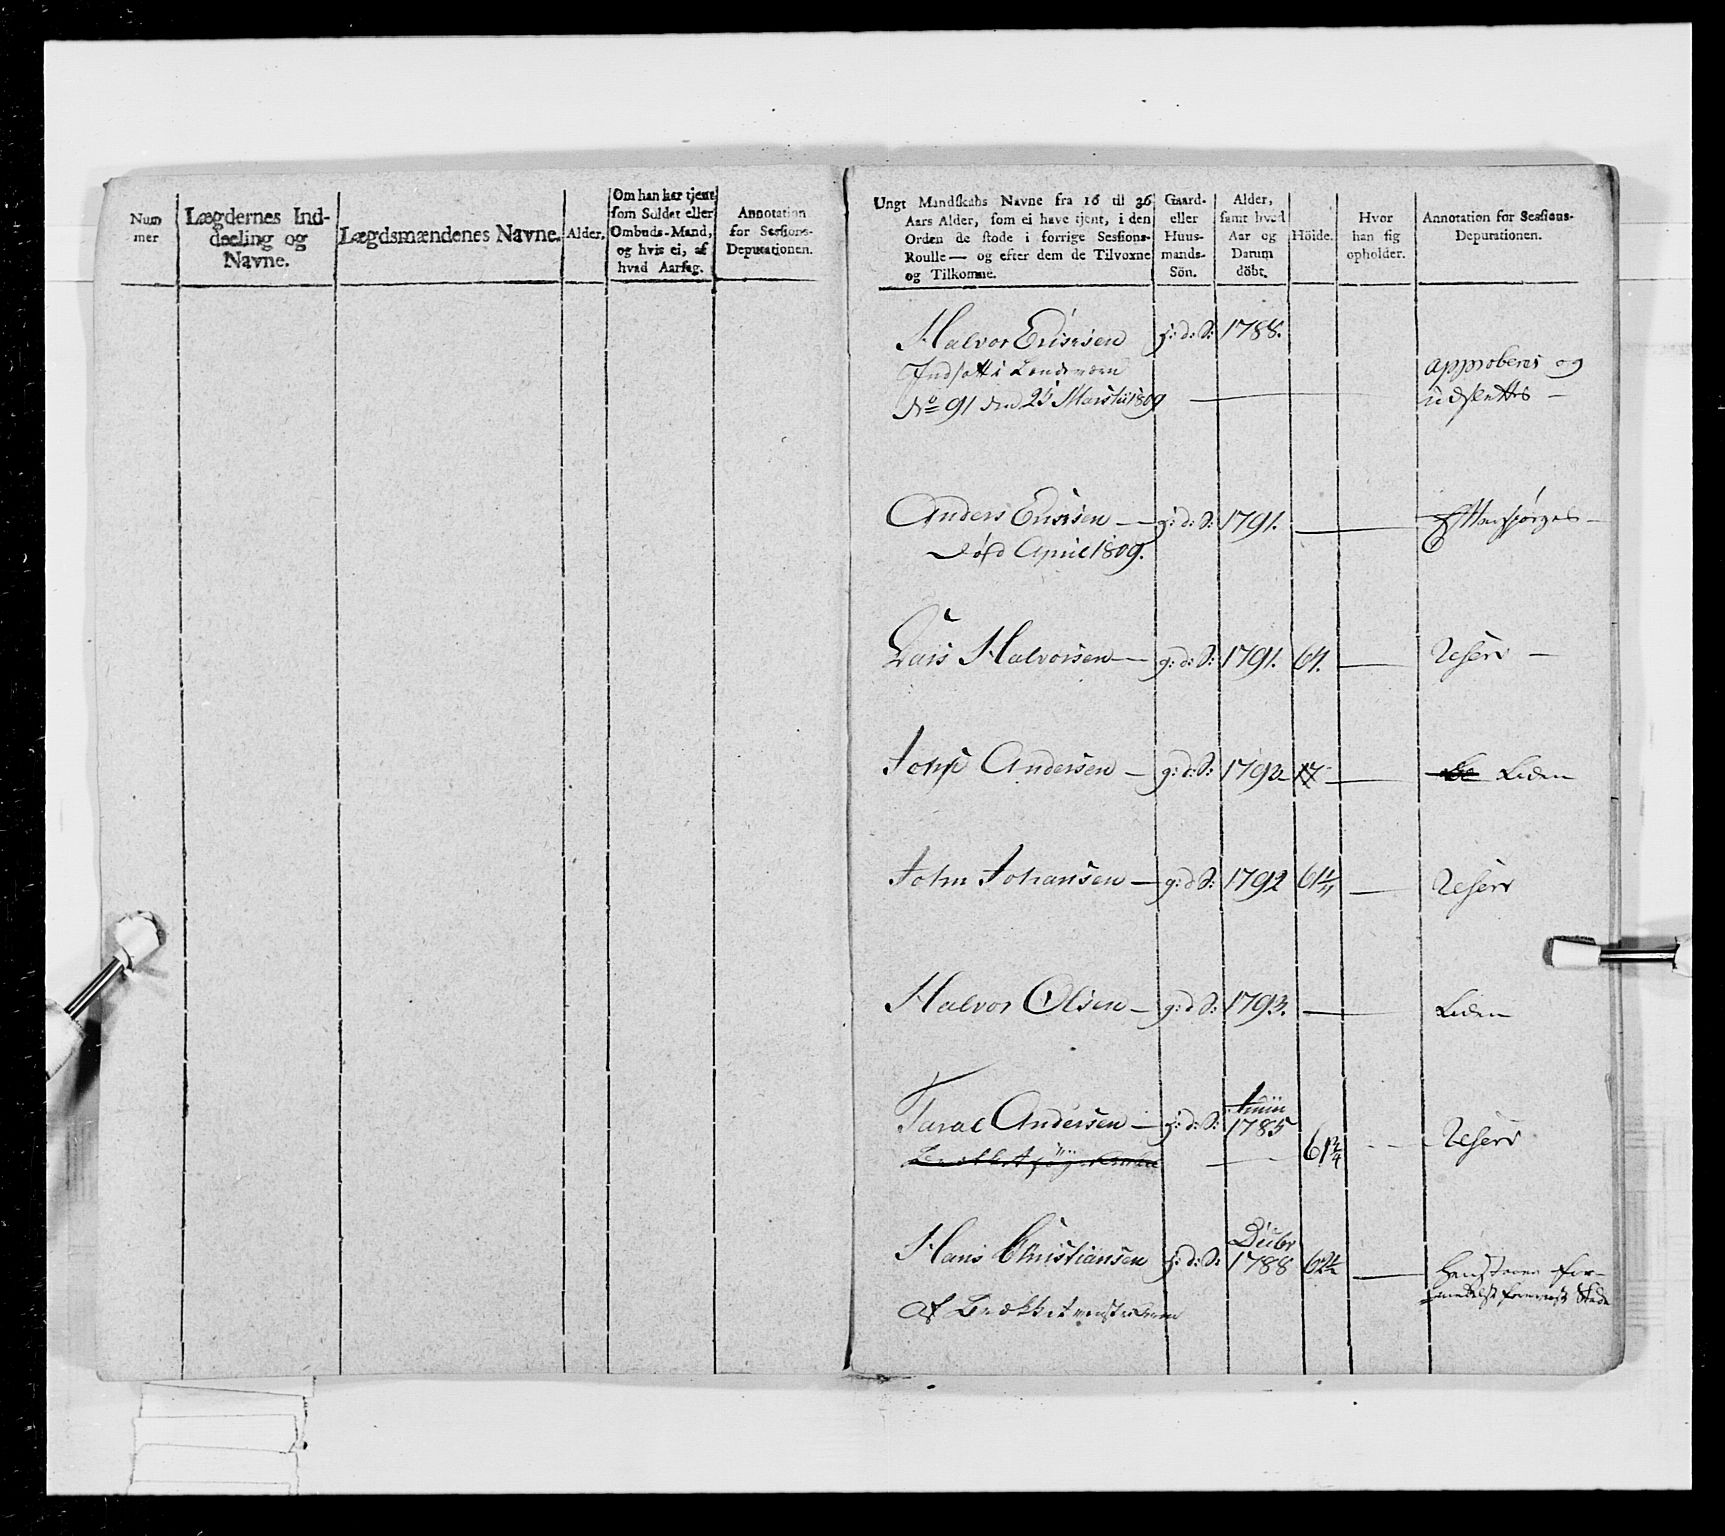 Num
mer
Lægdernes Ind-
deeling og
Navne.
Lægdsmændenes Navne.
Alder.
Om han har tjent
som Soldat eller
Ombuds-Mand,
og hvis ei, af
hvad Aarsag.
Annotation
for Sessions-
Deputationen.
Ungt Mandskabs Navne fra 16 til 36
Aars Alder, som ei have tjent, i den
Orden de stode i forrige Sessions-
Roulle — og efter dem de Tilvoxne
og Tilkomne.
Gaard-
eller
Huus-
mands-
Sön.
Alder,
samt hvad
Aar og
Datum
döbt.
Höide.
Hvor
han sig
opholder.
Annotation for Sessions-
Deputationen.
Halvor Erichsen h: d: S: 1788.
Indsatt i Landeværn
No 91 den 25 Martii 1809 — approberes og
udslettes —
Anders Erichsen — g: d: S: 1791. —
Død April 1809.
Lars Halvorsen — g: d: S: 1791. 61. — Reserv —
Johan Andersen — g: d: S: 1792 — Liden
John Johansen — g: d S: 1792 61 1/4 — Reserv
Halvor Olsen — g: d S: 1793. — Liden
Junii
Taral Andersen — h: d: S: 1785
61 3/4 — Reserv
Decbr
Hans Christiansen h: d: S: 1788 62 1/2 —
af Brække